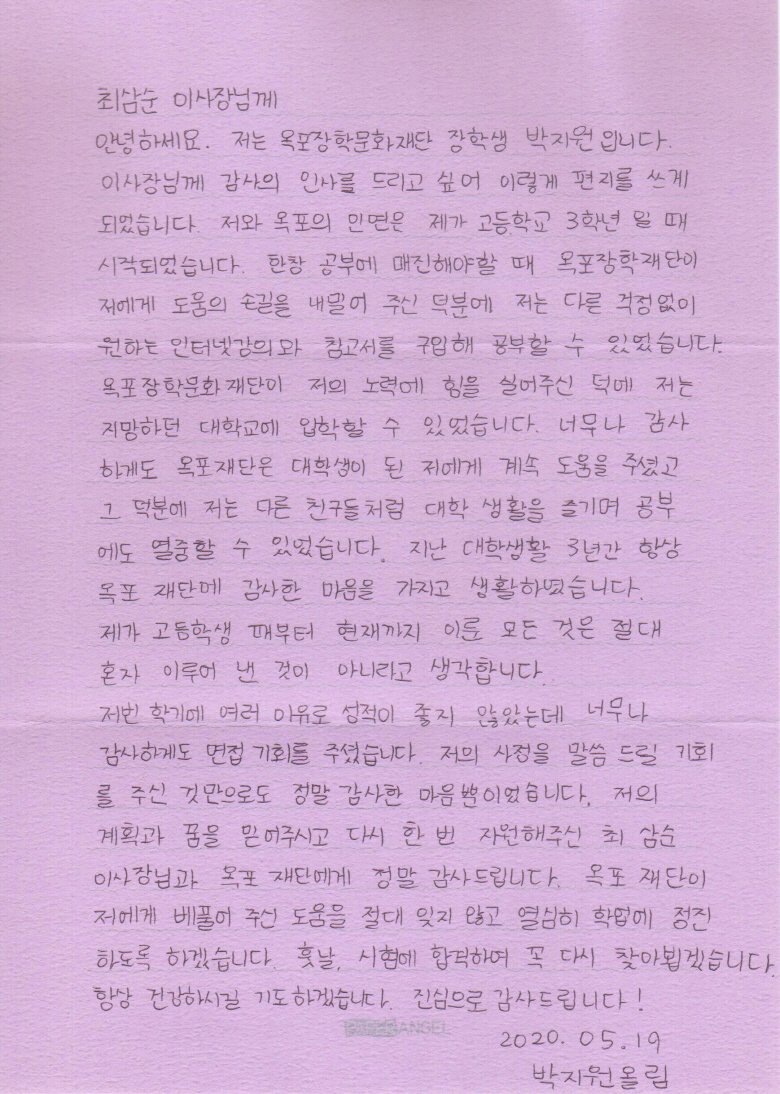 최삼순 이사장님께
안녕하세요. 저는 옥포장학문화재단 장학생 박지원입니다.
이사장님께 감사의 인사를 드리고 싶어 이렇게 편지를 쓰게
되었습니다. 저와 옥포의 인연은 제가 고등학교 3학년 일 때
시작되었습니다. 한창 공부에 매진해야할 때 옥포장학재단이
저에게 도움의 손길을 내밀어 주신 덕분에 저는 다른 걱정없이
원하는 인터넷강의와 참고서를 구입해 공부할 수 있었습니다.
옥포장학문화재단이 저의 노력에 힘을 실어주신 덕에 저는
지망하던 대학교에 입학할 수 있었습니다. 너무나 감사
하게도 옥포재단은 대학생이 된 저에게 계속 도움을 주셨고
그 덕분에 저는 다른 친구들처럼 대학 생활을 즐기며 공부
에도 열중할 수 있었습니다. 지난 대학생활 3년간 항상
옥포 재단에 감사한 마음을 가지고 생활하였습니다.
제가 고등학생 때부터 현재까지 이룬 모든 것은 절대
혼자 이루어 낸 것이 아니라고 생각합니다.
저번 학기에 여러 이유로 성적이 좋지 않았는데 너무나
감사하게도 면접 기회를 주셨습니다. 저의 사정을 말씀 드릴 기회
를 주신 것만으로도 정말 감사한 마음뿐이었습니다. 저의
계획과 꿈을 믿어주시고 다시 한 번 지원해주신 최 삼순
이사장님과 옥포 재단에게 정말 감사드립니다. 옥포 재단이
저에게 베풀어 주신 도움들 절대 잊지 않고 열심히 학업에 정진
하도록 하겠습니다. 훗날, 시험에 합격하여 꼭 다시 찾아뵙겠습니다.
항상 건강하시길 기도하겠습니다. 진심으로 감사드립니다!
ANGEL
2020. 05. 19
박지원올림